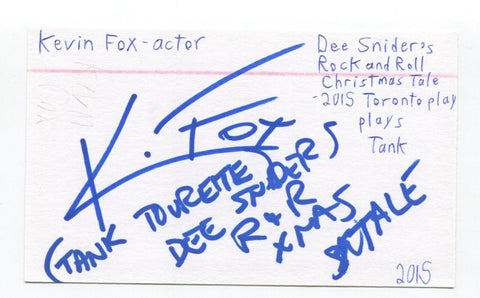 Kevin Fox-actor
Dee Snider's
Rock and Roll
Christmas Tale
-2015 Toronto play
plays
Tank
K. Fox
(TANK TOURETTE
DEE SNIDERS
R & R
XMAS
TALE
2015